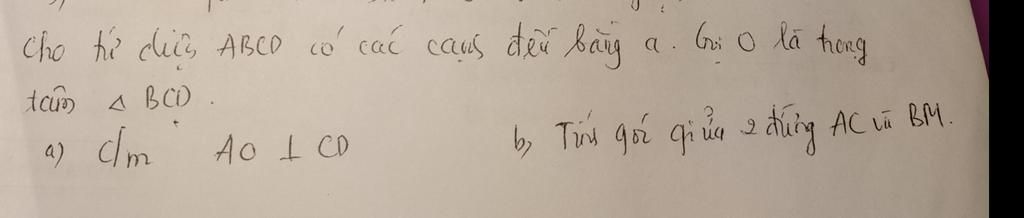 Cho tứ diện ABCD có các cạnh đều bằng a. Gọi O là trọng
tâm Δ BCD.
a) C/m AO ⊥ CD b, Tính góc giữa 2 đường AC và BM.